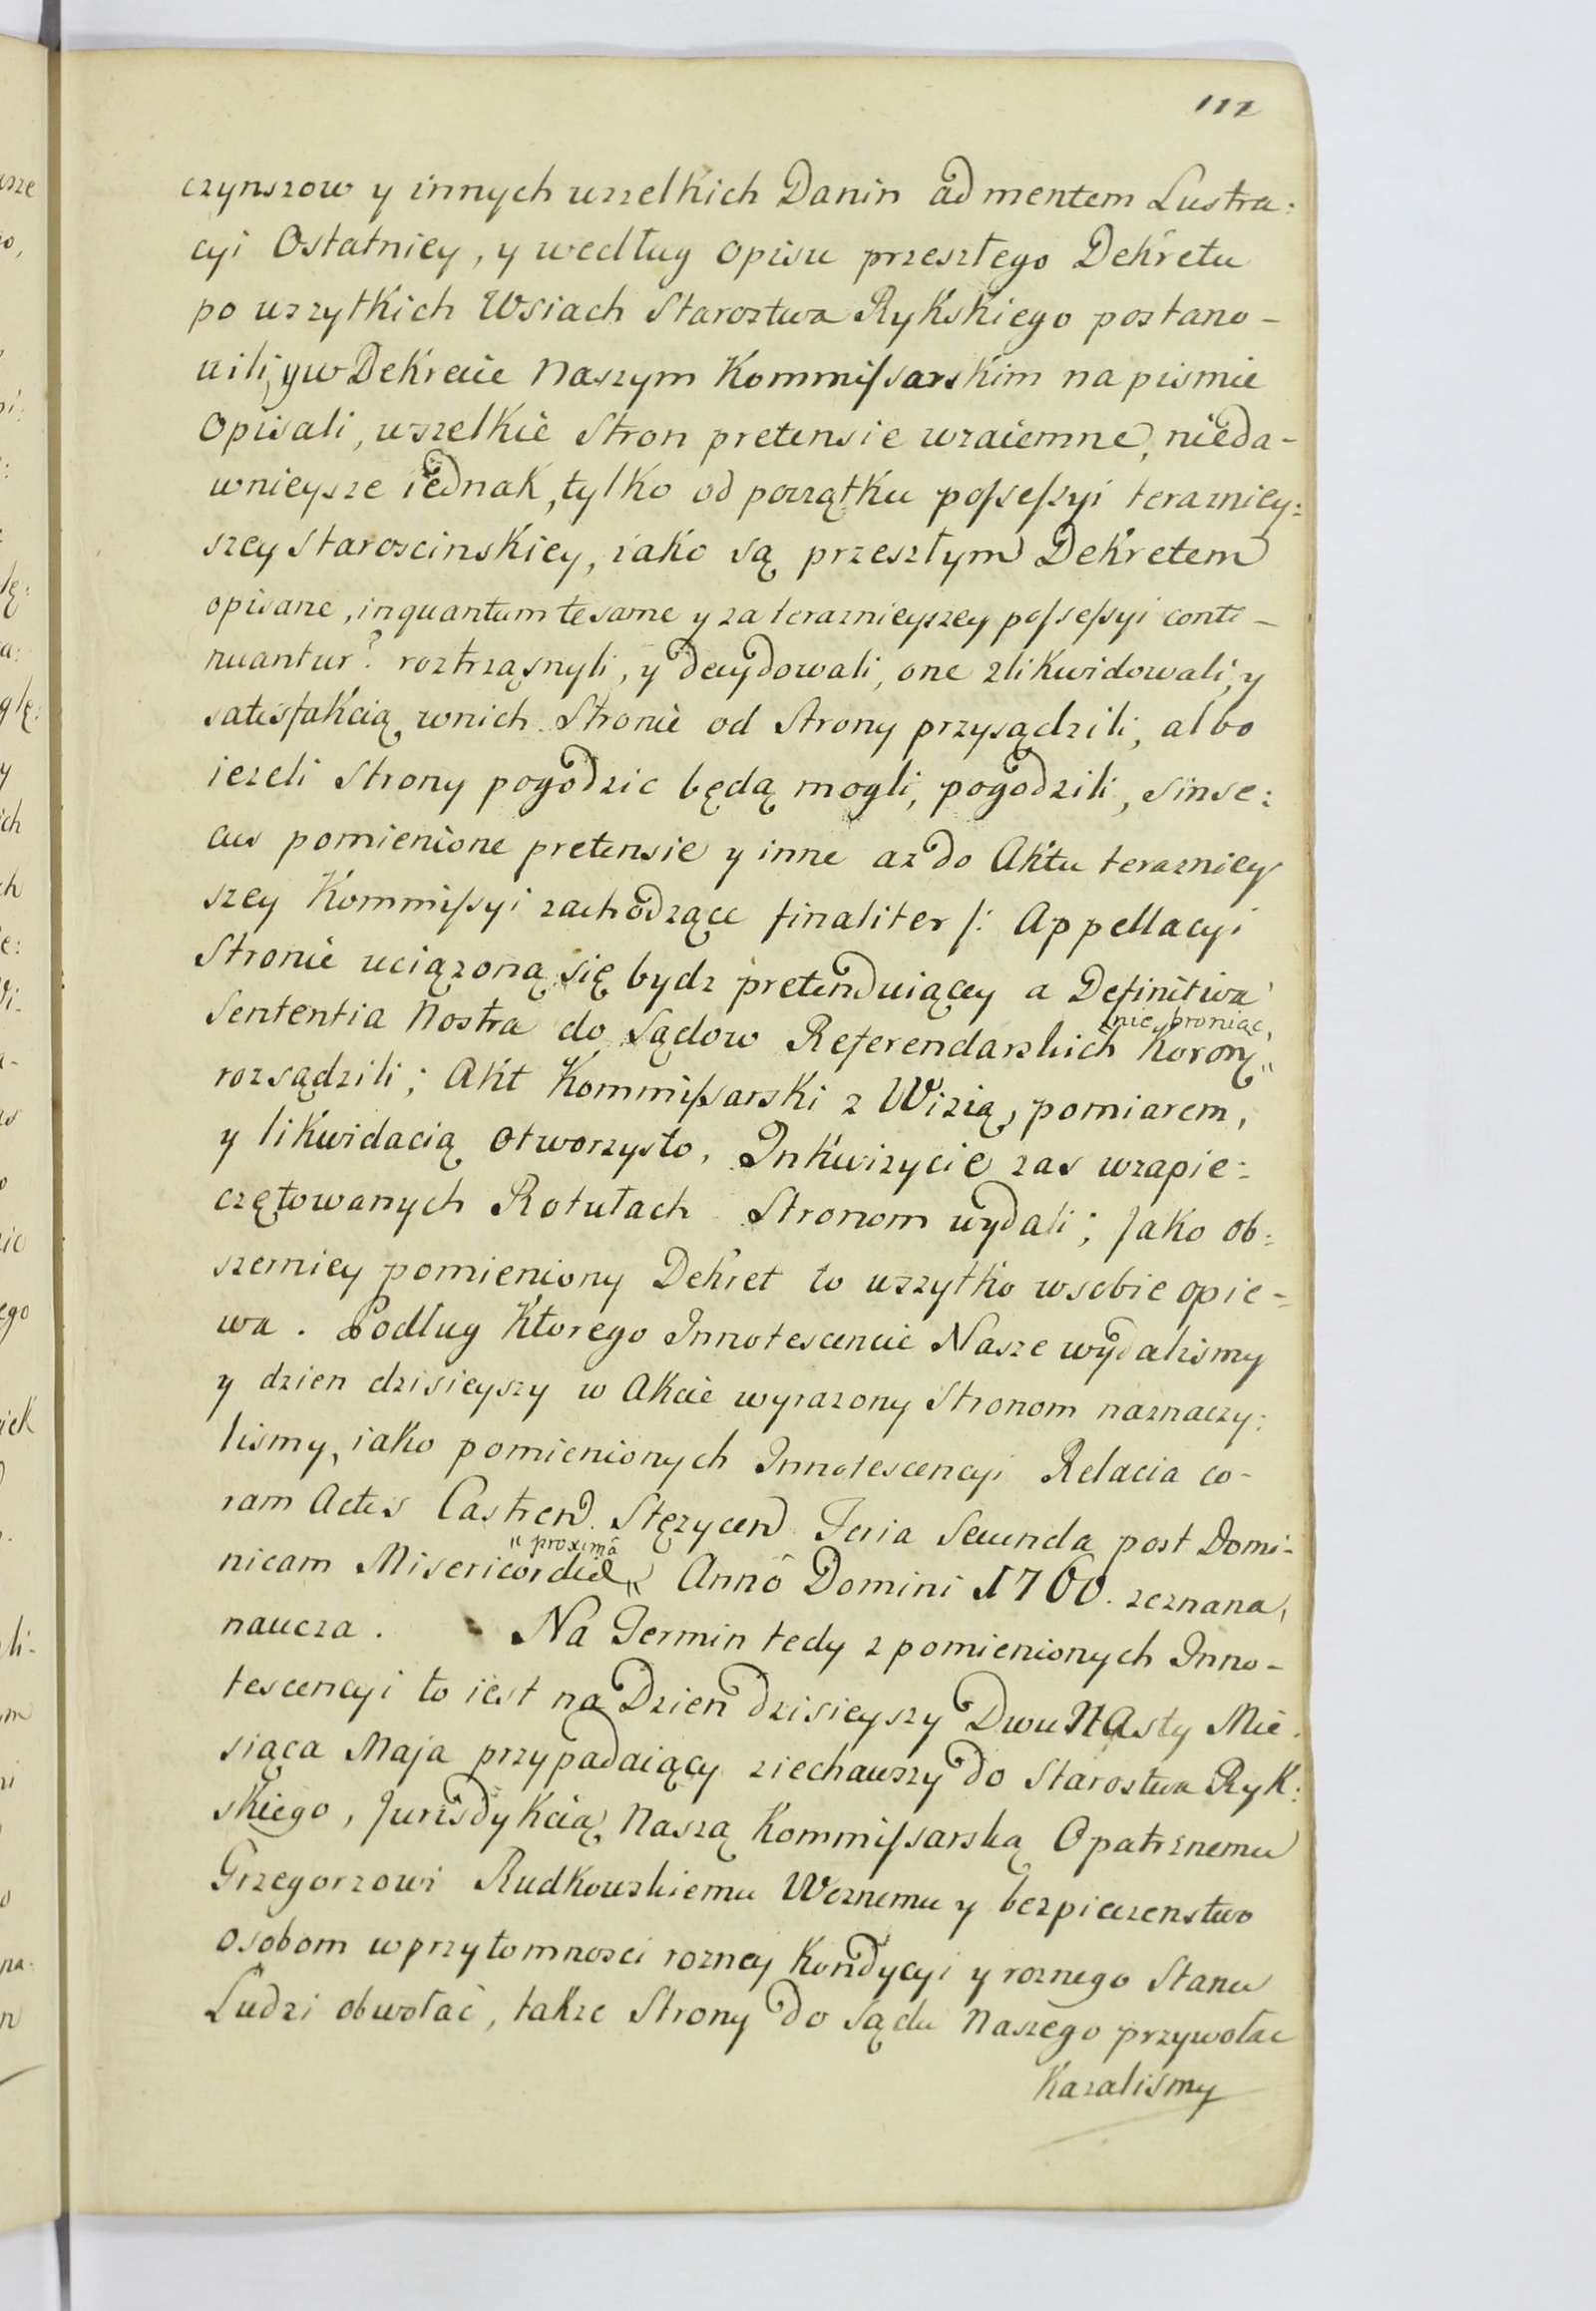 112
czynszow y innych wszelkich Danin ad mentem Lustra:
cyi Ostatniey, y według opisu przeszłego Dekretu
po wszytkich Wsiach Starostwa Rykskiego postano-
wili, y w Dekrecie Naszym Kommissarskim na pismie
Opisali, wszelkie Stron pretensie wzaiemne, nieda-
wnieysze iednak, tylko od początku possessyi terazniey:
szey Staroscinskiey, iako są przeszłym Dekretem
opisane, inquantum te same y za teraznieyszey possessyi conti-
nuantur? roztrząsnyli, y decydowali, one zlikwidowali, y
satisfakcią wnich Stronie od Strony przysądzili, albo
iezeli Strony pogodzic będą mogli, pogodzili, sinse:
cus pomienione pretensie y inne az do Aktu terazniey
szey Kommissyi zachodzące finaliter /: Appellacyi
Stronie uciązoną się bydz pretenduiącey a Definitiva
Sententia Nostra do Sądow Referendarskich Korony
nie broniąc,
rozsądzili; Akt Kommissarski z Wizią, pomiarem,
y likwidacią otworzysto, Inkwizycie zas wzapie:
czętowanych Rotułach Stronom wydali; Jako ob:
szerniey pomieniony Dekret to wszytko wsobie opie-
wa. Podług Ktorego Innotescencie Nasze wydalismy
y dzien dzisieyszy w Akcie wyrazony Stronom naznaczy:
lismy, iako pomienionych Innotescencyi Relacia co-
ram Actis Castren. Stęzycen. Feria Secunda post Domi-
nicam Misericordiae „ Anno Domini 1760. zeznana,
„ proximâ
naucza. Na Termin tedy z pomienionych Inno-
tescencyi to iest na Dzien dzisieyszy DwuNAsty Mie
siąca Maja przypadaiący ziechawszy do Starostwa Ryk:
skiego, Jurisdykcią Naszą Kommissarską Opatrznemu
Grzegorzowi Rudkowskiemu Woznemu y bezpieczenstwo
osobom wprzytomnosci rozney Kondycyi y roznego Stanu
Ludzi obwołać, takze Strony do Sądu Naszego przywołac
Kazalismy